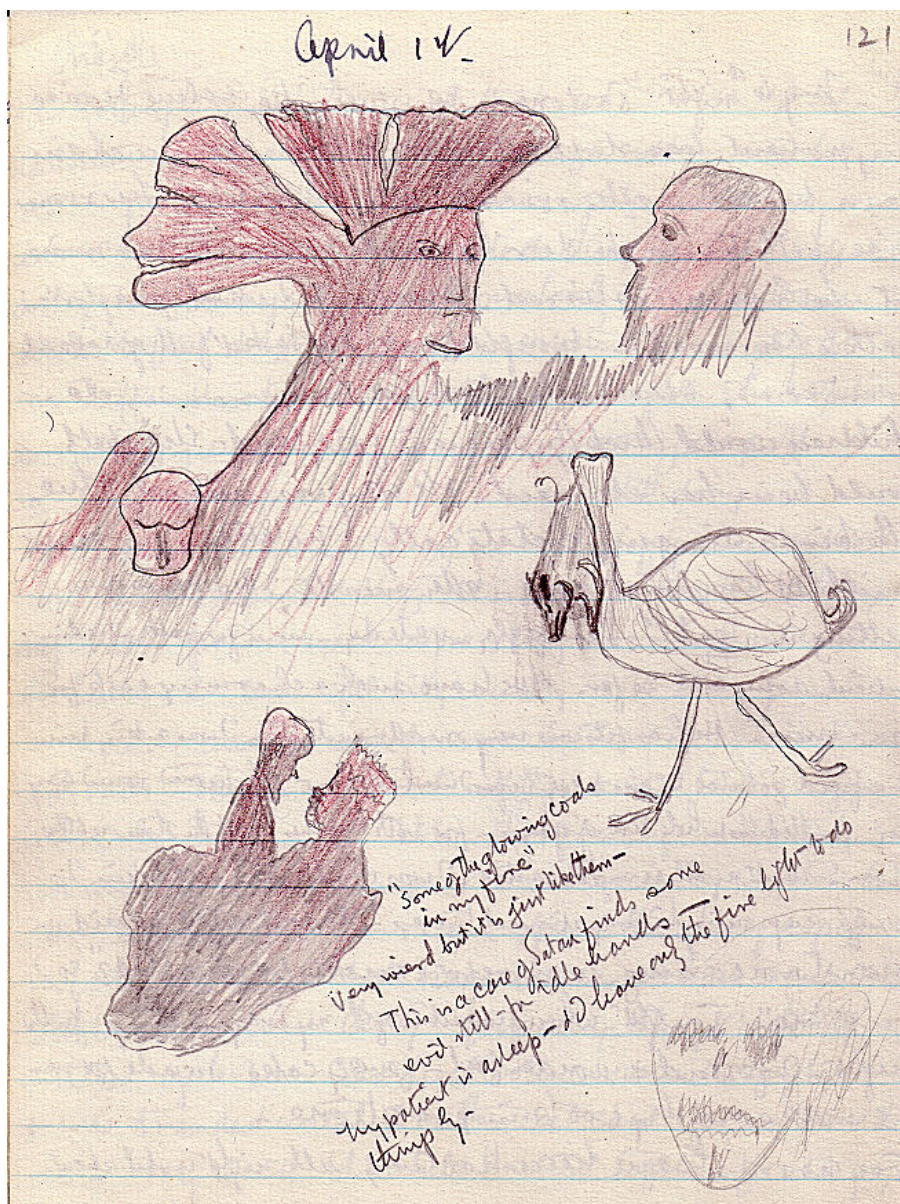 April 14-
121
"Some of the glowing coals
in my fire"
Very wierd but it is just like them-
This is a case of Satan finds some
evil still for idle hands -
My patient is asleep - I'd have only the fire light to do
things by-